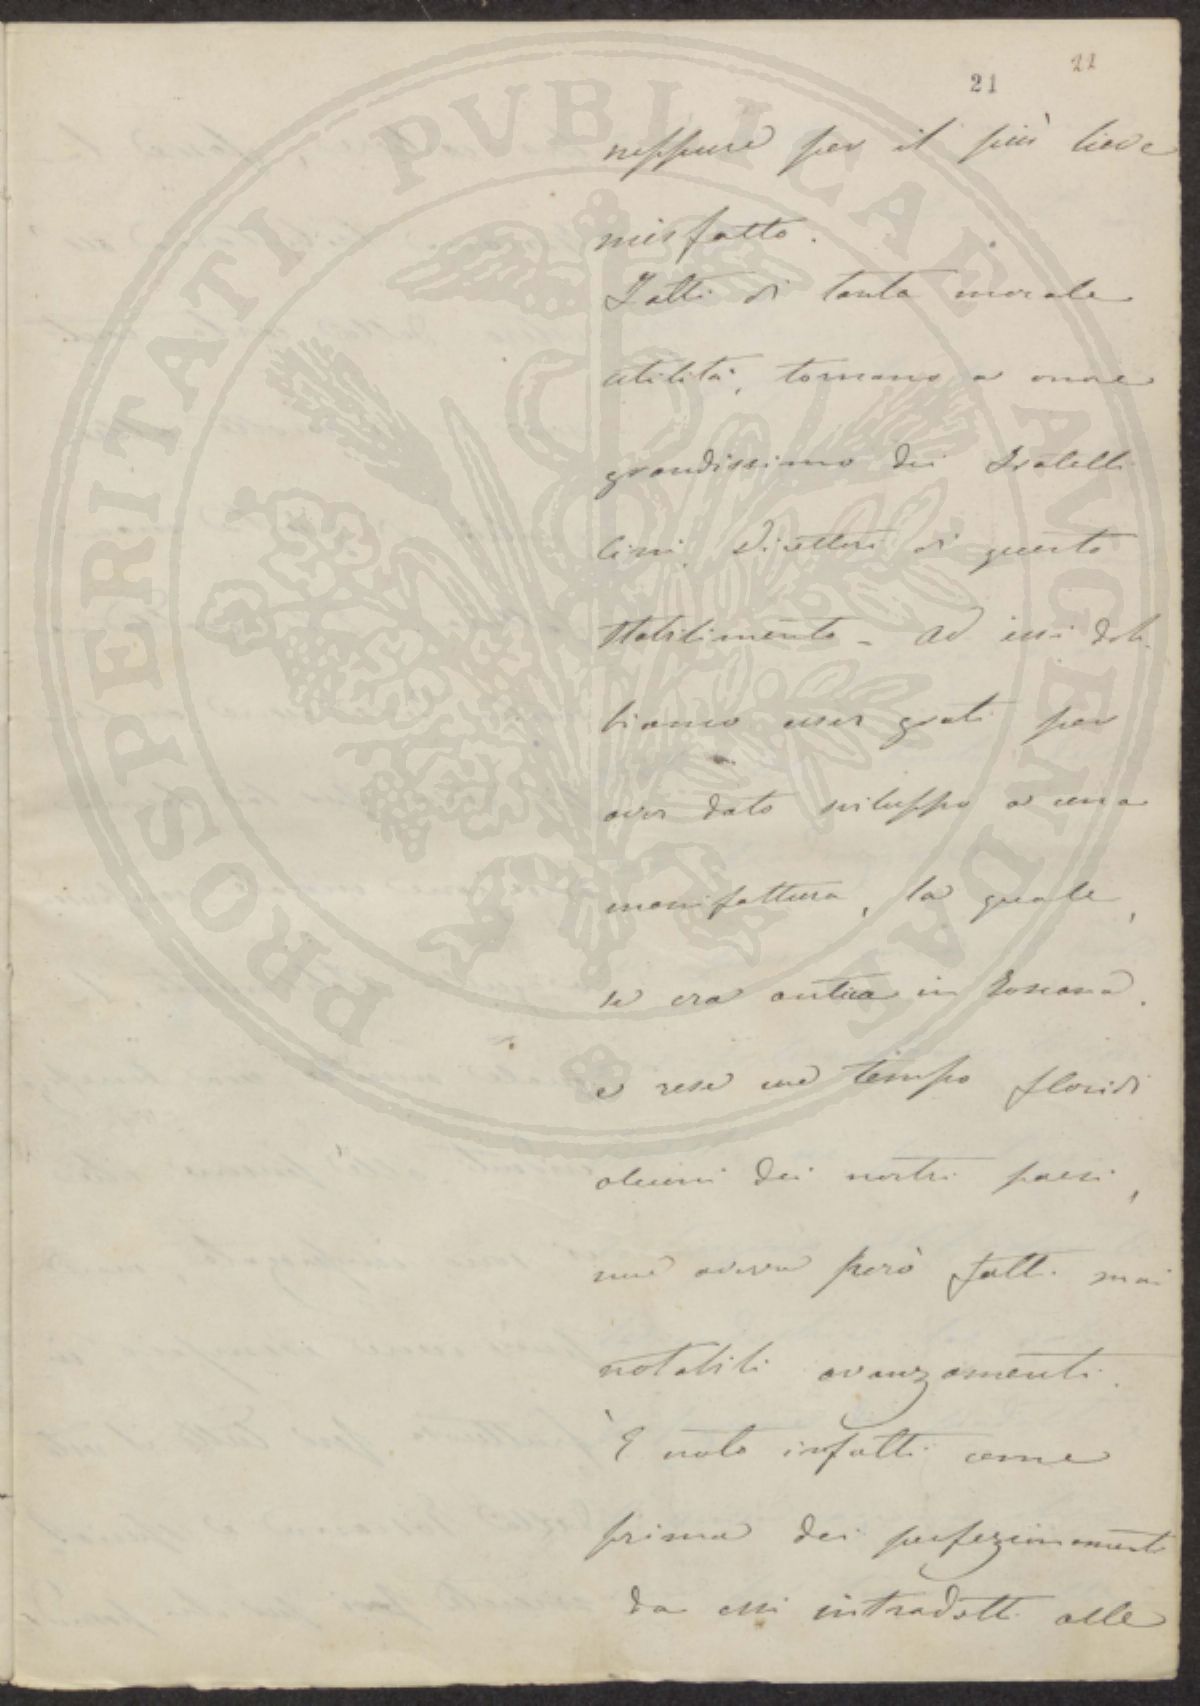 21 22
PROSPERITATI PVBLICAE AVGENDAE
neppure per il più lieve
misfatto.
Fatti di tanta morale
utilità, tornano a onore
grandissimo dei Fratelli
Cini, Direttori di questo
Stabilimento - Ad essi dob
biamo esser grati per
aver dato sviluppo a una
manifattura, la quale,
se era antica in Toscana,
e rese un tempo floridi
alcuni dei nostri paesi,
non aveva però fatti mai
notabili avanzamenti.
È noto infatti come
prima dei perfezionamenti
da essi introdotti alle